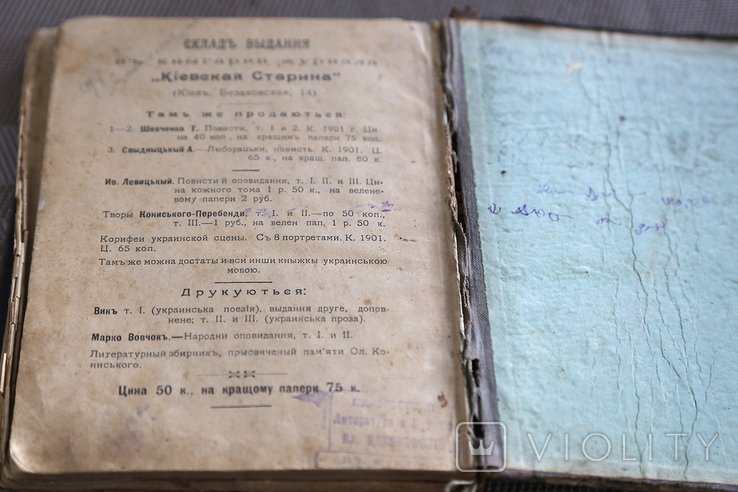 СКЛАДЪ ВЫДАННЯ
журнала
„Кіевская Старина"
(Кіевъ, Безаковская, 14)
Тамъ же продаються:
1—2. Шевченко Т. Повисти, т. 1 и 2. К. 1901 г. Ци-
на 40 коп., на кращимъ папери 75 коп.
3. Свыдныцькый А.—Люборацьки, повисть. К. 1901. Ц.
65 к., на кращ. пап. 80 к.
Ив. Левицькый. Повисти й оповидання, т. I, II и III. Ци-
на кожного тома 1 р. 50 к., на велене-
вому папери 2 руб.
Творы Кониського-Перебенди. т. I и II.—по 50 коп.,
т. III.—1 руб., на велен пап, 1 р. 50 к.
Корифеи украинской сцены. Съ 8 портретами. К. 1901.
Ц. 65 коп.
Тамъ же можна достаты й вси инши книжкы украинською
мовою.
Друкуються:
Викъ т. I. (украинська поезія), выдання друге, допов-
нене; т. II и III. (украинська проза).
Марко Вовчок.—Народни оповидання, т. I. и II.
Литературный збирникъ, прысвяченый пам'яти Ол. Ко-
ниського.
Цина 50 к., на кращому папери 75 к.
VIOLITY